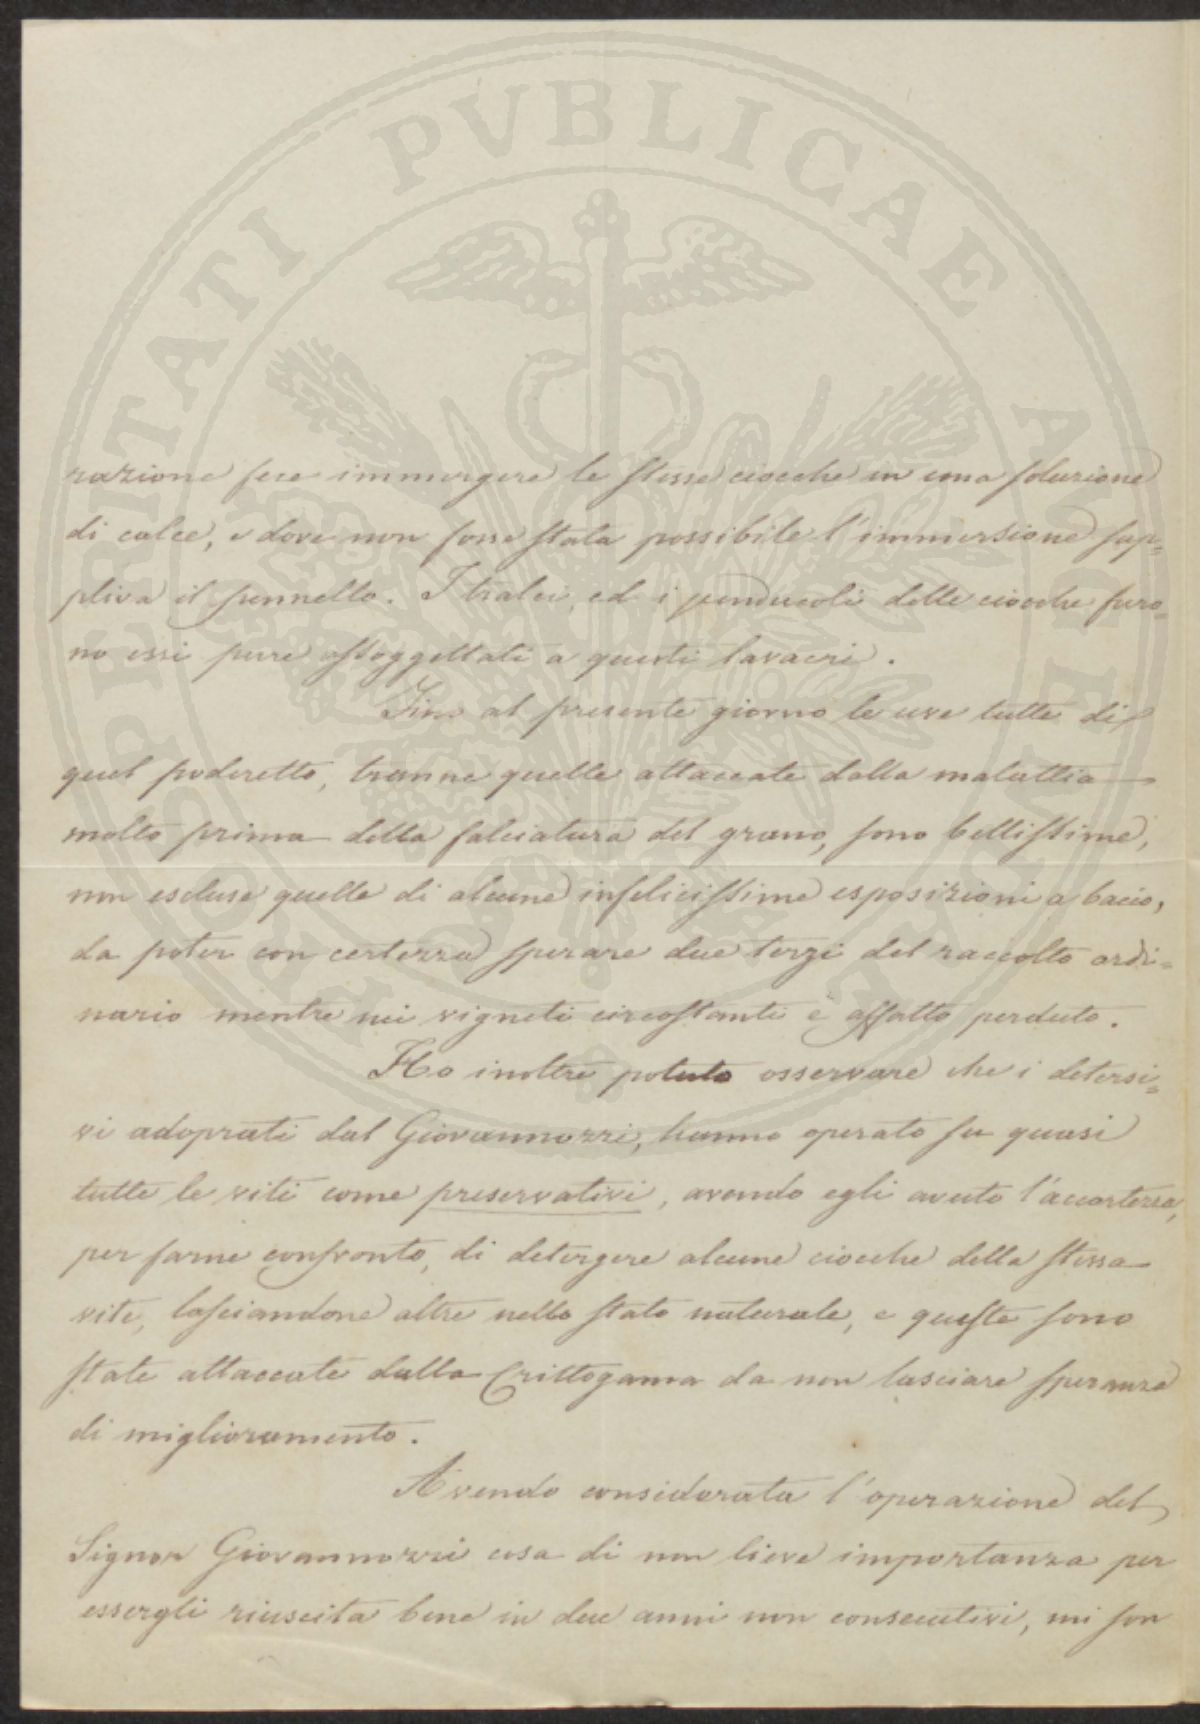 PROSPERITATI PUBLICAE AUGENDAE
razione fece immergere le stesse ciocche in una soluzione
di calce, e dove non fosse stata possibile l'immersione sup=
pliva il pennello. I tralci, ed i penducoli delle ciocche furo=
no essi pure assoggettati a questi lavacri.
Fino al presente giorno le uve tutte di
quel poderetto, tranne quelle attaccate dalla malattia
molto prima della falciatura del grano, sono bellissime,
non escluse quelle di alcune infelicissime esposizioni a bacio,
da poter con certezza sperare due terzi del raccolto ordi=
nario mentre nei vigneti circostanti è affatto perduto.
Ho inoltre potuto osservare che i detersi=
vi adoprati dal Giovannozzi, hanno operato su quasi
tutte le viti come preservativi, avendo egli avuto l'accortezza,
per farne confronto, di detergere alcune ciocche della stessa
vite, lasciandone altre nello stato naturale, e queste sono
state attaccate dalla Crittogama da non lasciare speranza
di miglioramento.
Avendo considerata l'operazione del
Signor Giovannozzi cosa di non lieve importanza per
essergli riuscita bene in due anni non consecutivi, mi son